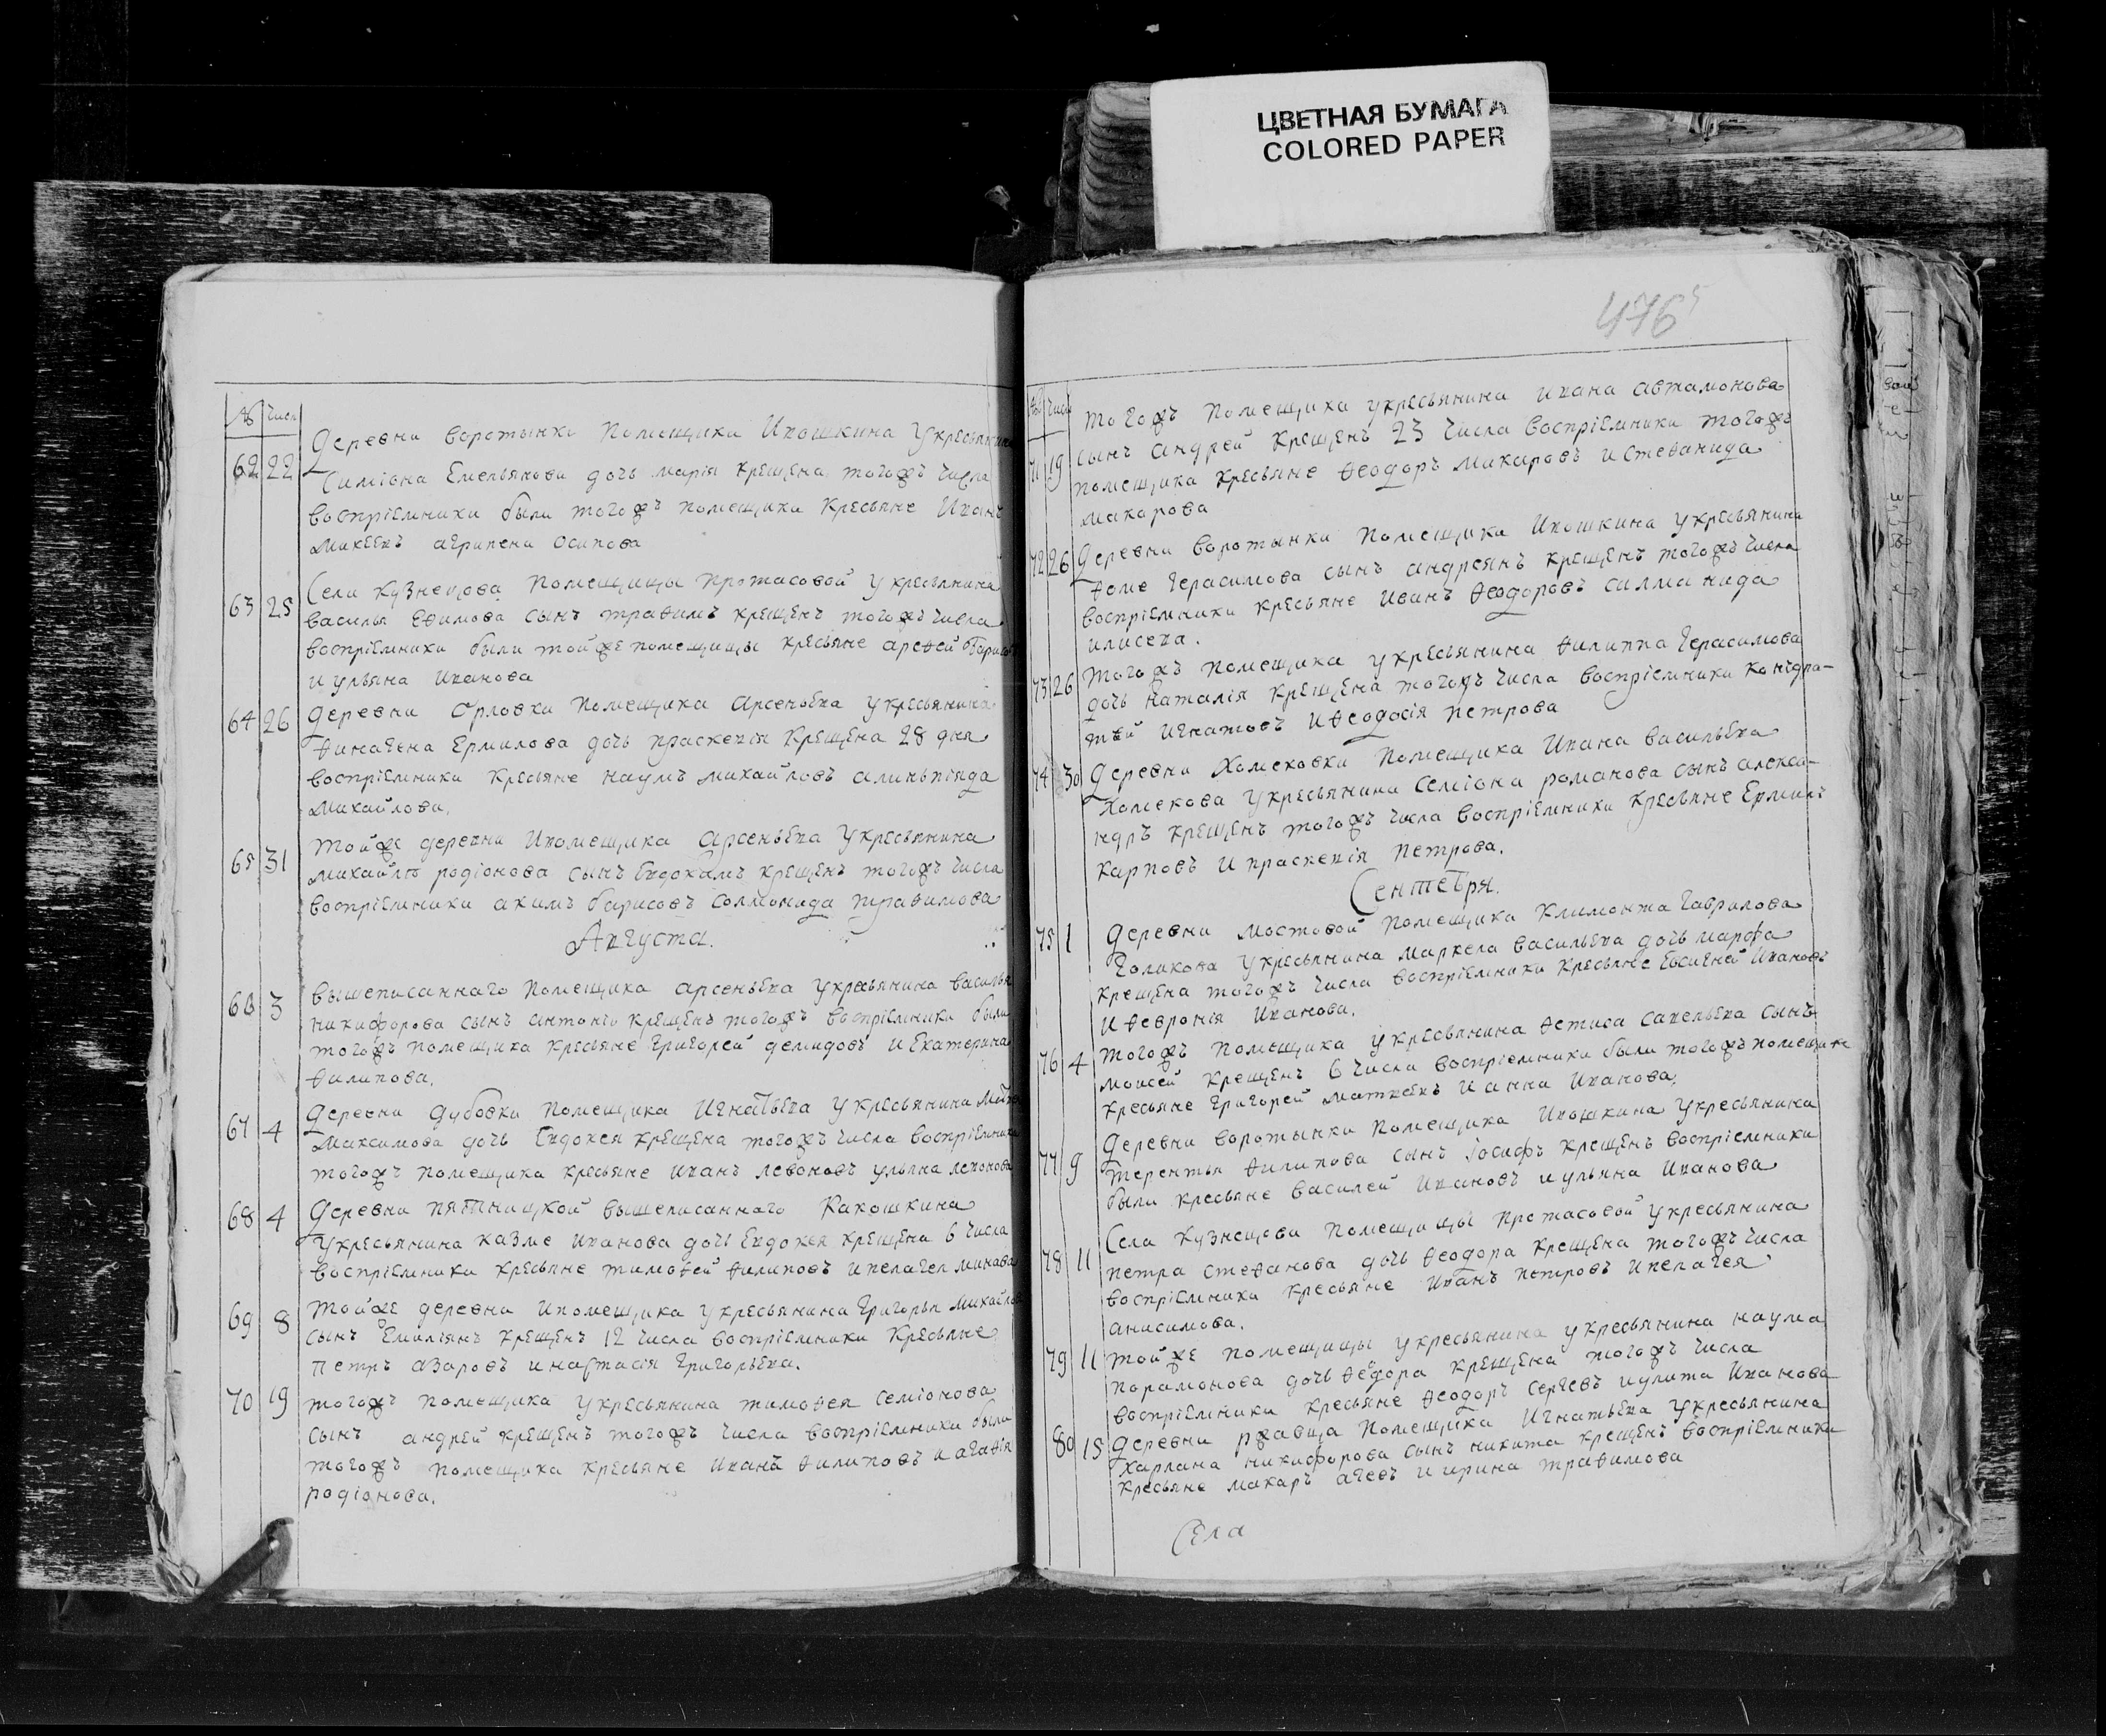 ЦВЕТНАЯ БУМАГА
COLORED PAPER
476
№ числ
Деревни воротынки помещика Ивошкина укресьянина
62 22 Симіона Емельянова дочь марія крещена тогожъ числа
воспріемники были тогожъ помещика кресьяне Иванъ
Михеевъ агрипена осипова
Села кузнецова помещицы протасовой укресьянина
63 25 василья еѳимова сынъ траѳимъ крещенъ тогожъ числа
воспріемники были тойже помещицы кресьяне ареѳей барисовъ
и ульяна иванова
64 26 Деревни орловки помещика арсеньева укресьянина
ѳинагена Ермилова дочь праскевія крещена 28 дня
воспріемники кресьяне наумъ михайловъ алиньпіяда
михайлова.
тойже деревни ипомещика арсеньева укресьянина
65 31 михайло родіонова сынъ Евдокимъ крещенъ тогожъ числа
воспріемники акимъ барисовъ соломонида траѳимова
Августа.
66 3 вышеписаннаго помещика арсеньева укресьянина василья
никифорова сынъ антоніо крещенъ тогожъ воспріемники были
тогожъ помещика кресьяне григорей демидовъ и екатерина
ѳилипова.
67 4 Деревни дубовки помещика игнатьева укресьянина
Максимова дочь Евдокея крещена тогожъ числа воспріемники
тогожъ помещика кресьяне иванъ левоновъ ульяна левонова
68 4 Деревни пятницкой вышеписаннаго Ракошкина
укресьянина казме иванова дочь Евдокея крещена 6 числа
воспріемники кресьяне тимоѳей ѳилиповъ ипелагея минава
69 8 тойже деревни ипомещика укресьянина григорья михайлова
сынъ Емиліянъ крещенъ 12 числа воспріемники кресьяне
петръ азаровъ инастасія григорьева.
70 19 тогожъ помещика укресьянина тимоѳея семіонова
сынъ андрей крещенъ тогожъ числа воспріемники были
тогожъ помещика кресьяне иванъ ѳилиповъ и агаѳія
родіонова.
№ числ
тогожъ помещика укресьянина ивана автамонова
71 19 сынъ андрей крещенъ 23 числа воспріемники тогожъ
помещика кресьяне ѳеодоръ макаровъ истеѳанида
макарова
72 26 Деревни воротынки помещика Ивошкина укресьянина
ѳоме герасимова сынъ андреянъ крещенъ тогожъ числа
воспріемники кресьяне иванъ ѳеодоровъ салманида
илисева.
73 26 тогожъ помещика укресьянина ѳилиппа герасимова
дочь наталія крещена тогожъ числа воспріемники конъдра-
тей игнатовъ иѳеодосія петрова
74 30 Деревни Хомековки помещика ивана васильева
Хомекова укресьянина семіона романова сынъ алекса-
ндръ крещенъ тогожъ числа воспріемники кресьяне Ермилъ
карповъ и праскевія петрова.
Сентебря.
75 1 Деревни мостовой помещика климонта гаврилова
голикова укресьянина маркела васильева дочь марфа
крещена тогожъ числа воспріемники кресьяне Евсигней ивановъ
и ѳевронія иванова.
76 4 тогожъ помещика укресьянина ѳетиса савельева сынъ
моисей крещенъ 6 числа воспріемники были тогожъ помещика
кресьяне григорей матвеевъ и анна иванова.
Деревни воротынки помещика ивошкина укресьянина
77 9 терентья ѳилипова сынъ іосифъ крещенъ воспріемники
были кресьяне василей ивановъ иульяна иванова
Села кузнецова помещицы протасовой укресьянина
78 11 петра стеѳанова дочь ѳеодора крещена тогожъ числа
воспріемники кресьяне иванъ петровъ ипелагея
анисимова.
79 11 тойже помещицы укресьянина укресьянина наума
парамонова дочь ѳедора крещена тогожъ числа
воспріемники кресьяне ѳеодоръ сергеевъ иулита иванова
80 15 Деревни ржавца помещика игнатьева укресьянина
харлана никифорова сынъ никита крещенъ воспріемники
кресьяне макаръ агеевъ и ирина траѳимова
Села